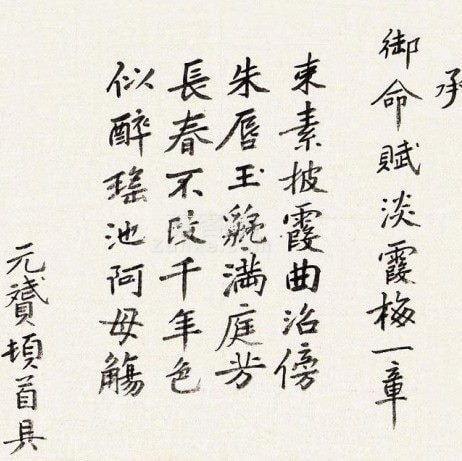 承
御命賦淡霞梅一章
束素披霞曲沼傍
朱唇玉貌滿庭芳
長春不改千年色
似醉瑤池阿母觴
元贇頓首具